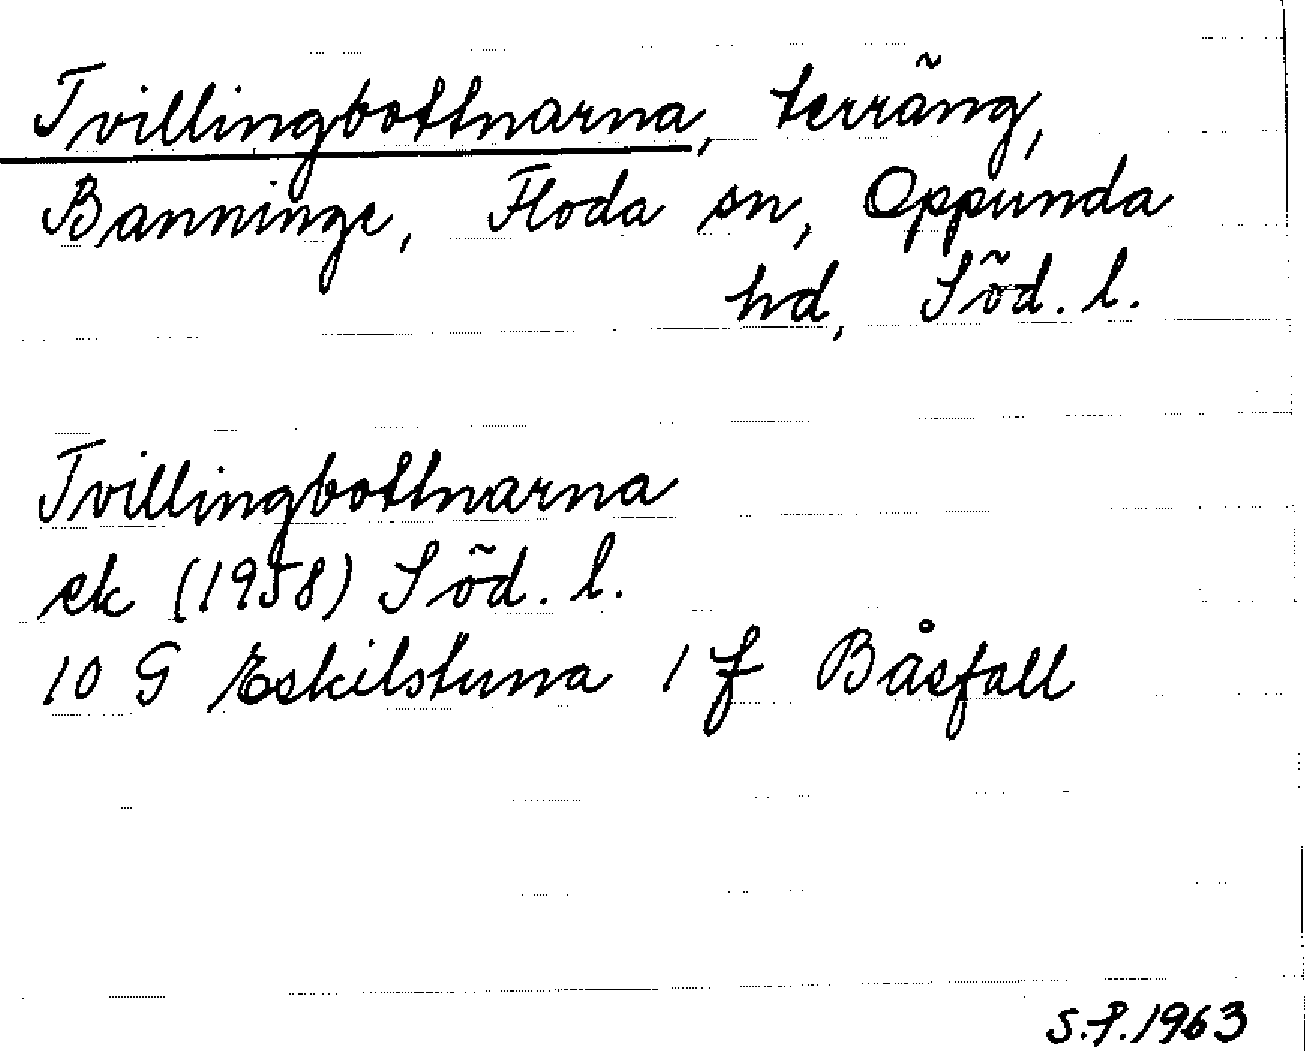 Tvillingbottnarna, terräng,
Banninge, Floda sn, Oppunda
hd, Söd. l.
Tvillingbottnarna
ek (1958) Söd. l.
10 G Eskilstuna 1 f Båsfall
S.P. 1963